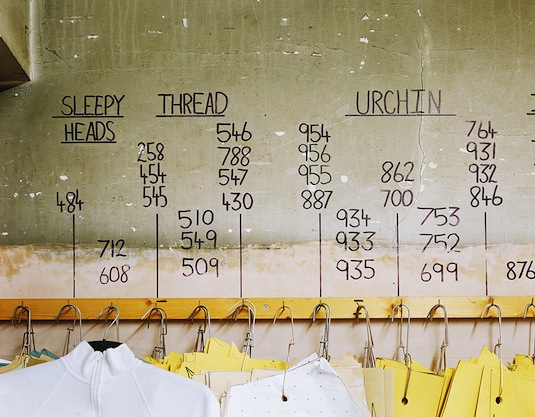 SLEEPY
HEADS
THREAD
URCHIN
484
712
608
258
454
545
510
549
509
546
788
547
430
954
956
955
887
934
933
935
862
700
753
752
699
764
931
932
846
876